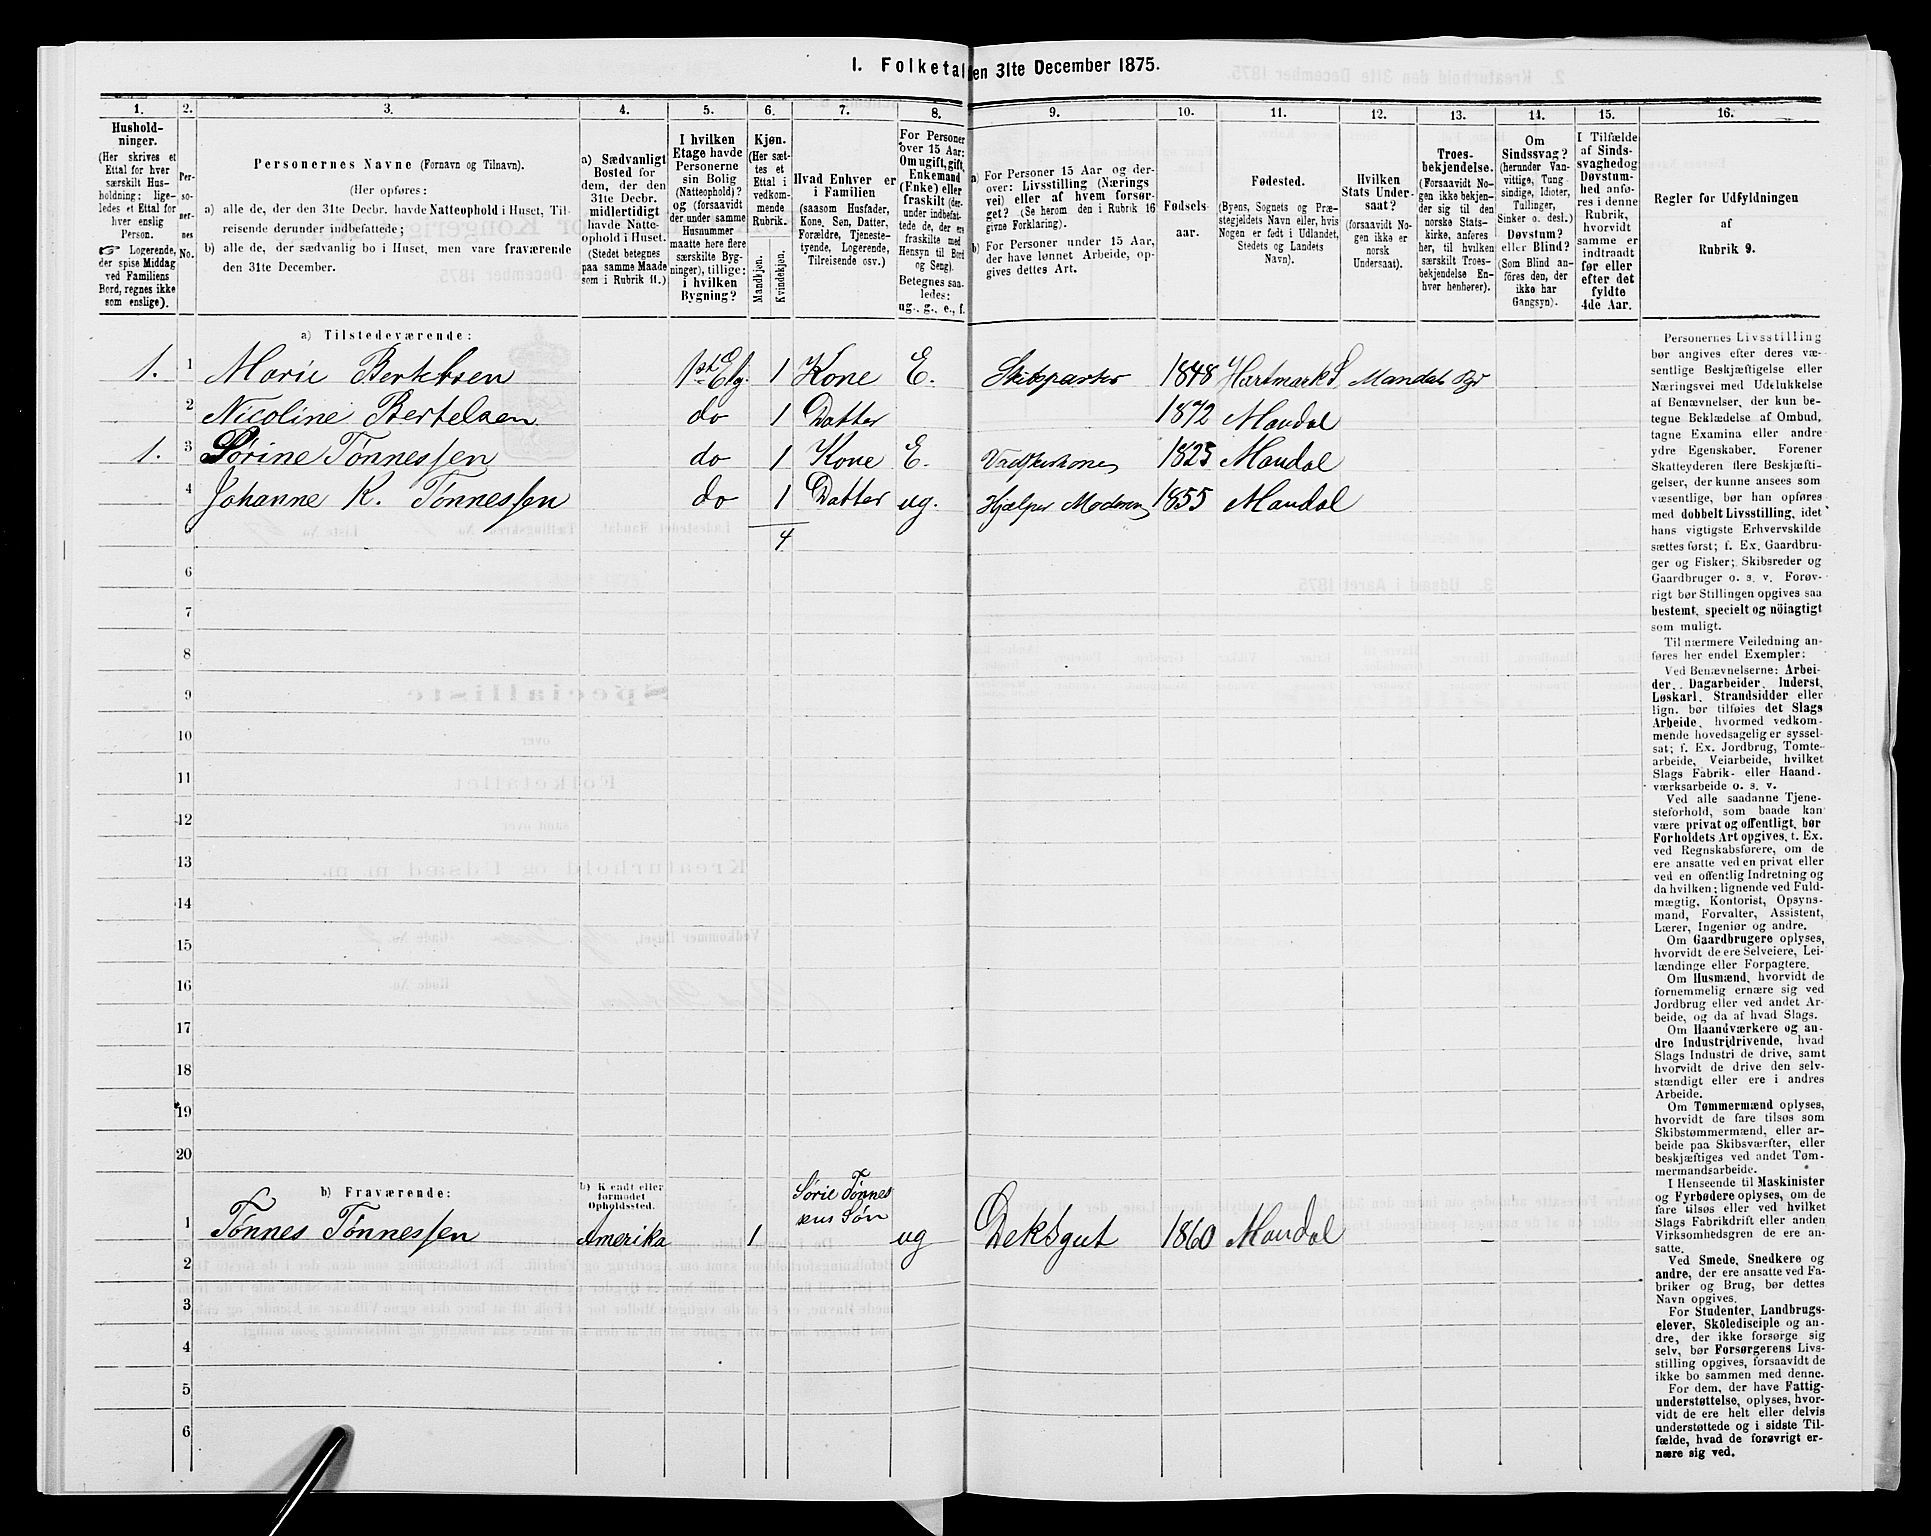 I. Folketal den 31te December 1875.
1. 2. 3. 4. 5. 6. 7. 8. 9. 10. 11. 12. 13. 14. 15. 16.
Hushold-
ninger.
(Her skrives et
Ettal for hver
særskilt Hus-
holdning; lige-
ledes et Ettal for
hver enslig
Person.
Logerende,
der spise Middag
ved Familiens
Bord, regnes ikke
som enslige).
Per-
so-
ner-
nes
No.
Personernes Navne (Fornavn og Tilnavn).
(Her opføres:
a) alle de, der den 31te Decbr. havde Natteophold i Huset, Til-
reisende derunder indbefattede;
b) alle de, der sædvanlig bo i Huset, men vare fraværende
den 31te December.
a) Sædvanligt
Bosted for
dem, der den
31te Decbr.
midlertidigt
havde Natte-
ophold i Huset.
(Stedet betegnes
paa samme Maade
som i Rubrik 11.)
I hvilken
Etage havde
Personerne
sin Bolig
(Natteophold)?
og (forsaavidt
der under samme
Husnummer
maatte høre flere
særskilte Byg-
ninger), tillige:
i hvilken
Bygning?
Kjøn.
(Her sæt-
tes et
Ettal i
vedkom-
mende
Rubrik.
Mandkjøn.
Kvindekjøn.
Hvad Enhver er
i Familien
(saasom Husfader,
Kone, Søn, Datter,
Forældre, Tjeneste-
tyende, Logerende,
Tilreisende osv.)
For Personer
over 15 Aar:
Om ugift, gift,
Enkemand
(Enke) eller
fraskilt (der-
under indbefat-
tede de, der ere
fraskilte med
Hensyn til Bord
og Seng).
Betegnes saa-
ledes:
ug., g., e., f.
a) For Personer 15 Aar og der-
over: Livsstilling (Nærings
vei) eller af hvem forsør-
get? (Se herom den i Rubrik 16
givne Forklaring).
b) For Personer under 15 Aar,
der have lønnet Arbeide, op-
gives dettes Art.
Fødsels-
aar.
Fødested.
(Byens, Sognets og Præ-
stegjeldets Navn eller, hvis
Nogen er født i Udlandet,
Stedets og Landets
Navn).
Hvilken
Stats Under-
saat?
(forsaavidt No-
gen ikke er
norsk
Undersaat).
Troes-
bekjendelse.
(Forsaavidt No-
gen ikke bekjen-
der sig til den
norske Stats-
kirke, anføres
her, til hvilken
særskilt Troes-
bekjendelse En-
hver henhører).
Om
Sindssvag?
(herunder Van-
vittige, Tung-
sindige, Idioter,
Tullinger,
Sinker o. desl.)
Døvstum?
eller Blind?
(Som Blind an-
føres den, der
ikke har
Gangsyn).
I Tilfælde
af Sinds-
svaghedog
Døvstum-
hed anfø-
res i denne
Rubrik,
hvorvidt
samme er
indtraadt
før eller
efter det
fyldte
4de Aar.
Regler for Udfyldningen
af
Rubrik 9.
a) Tilstedeværende:
1. 1 Marie Bertelsen 1st Etg. 1 Kone E. 1848 Mandals
2 Nicoline Bertelsen do 1 Datter 1872 Mandal
1. 3 Sørine Tønnessen do 1 Kone E. 1825 Mandal
4 Johanne K. Tønnessen do 1 Datter ug. Hjælper Moderen 1855 Mandal
5 4
6
7
8
9
10
11
12
13
14
15
16
17
18
19
20
b) Fraværende:
b) Kjendt eller
formodet
Opholdssted.
1 Tønnes Tønnessen Amerika 1 Sørie Tønnes
sens Søn ug Deksgut 1860 Mandal
2
3
4
5
6
Personernes Livsstilling
bør angives efter deres væ-
sentlige Beskjæftigelse eller
Næringsvei med Udelukkelse
af Benævnelser, der kun be-
tegne Beklædelse af Ombud,
tagne Examina eller andre
ydre Egenskaber. Forener
Skatteyderen flere Beskjæfti-
gelser, der kunne ansees som
væsentlige, bør han opføres
med dobbelt Livsstilling, idet
hans vigtigste Erhvervskilde
sættes først; f. Ex. Gaardbru-
ger og Fisker; Skibsreder og
Gaardbruger o. s. v. Forøv-
rigt bør Stillingen opgives saa
bestemt, specielt og nöiagtigt
som muligt.
Til nærmere Veiledning an-
føres her endel Exempler:
Ved Benævnelserne: Arbei-
der, Dagarbeider, Inderst,
Løskarl, Strandsidder eller
lign. bør tilføies det Slags
Arbeide, hvormed vedkom-
mende hovedsagelig er syssel-
sat; f. Ex. Jordbrug, Tomte-
arbeide, Veiarbeide, hvilket
Slags Fabrik- eller Haand-
værksarbeide o. s. v.
Ved alle saadanne Tjene-
steforhold, som baade kan
være privat og offentligt, bør
Forholdets Art opgives, t. Ex.
ved Regnskabsførere, om de
ere ansatte ved en privat eller
ved en offentlig Indretning og
da hvilken; lignende ved Fuld-
mægtig, Kontorist, Opsyns-
mand, Forvalter, Assistent,
Lærer, Ingeniør og andre.
Om Gaardbrugere oplyses,
hvorvidt de ere Selveiere, Lei-
lændinge eller Forpagtere.
Om Husmænd, hvorvidt de
fornemmelig ernære sig ved
Jordbrug eller ved andet Ar-
beide, og da af hvad Slags.
Om Haandværkere og an-
dre Industridrivende, hvad
Slags Industri de drive, samt
hvorvidt de drive den selv-
stændigt eller ere i andres
Arbeide.
Om Tømmermænd oplyses,
hvorvidt de fare tilsøs som
Skibstømmermænd, eller ar-
beide paa Skibsværfter, eller
beskjæftiges ved andet Tøm-
mermandsarbeide.
I Henseende til Maskinister
og Fyrbødere oplyses, om de
fare tilsøs eller ved hvilket
Slags Fabrikdrift eller anden
Virksomhedsgren de ere an-
satte.
Ved Smede, Snedkere og
andre, der ere ansatte ved Fa-
briker og Brug, bør dettes
Navn opgives.
For Studenter, Landbrugs-
elever, Skoledisciple og an-
dre, der ikke forsørge sig
selv, bør Forsørgerens Livs-
stilling opgives, forsaavidt de
ikke bo sammen med denne.
For dem, der have Fattig-
understøttelse, oplyses, hvor-
vidt de ere helt eller delvis
understøttede og i sidste Til-
fælde, hvad de forøvrigt er-
nære sig ved.